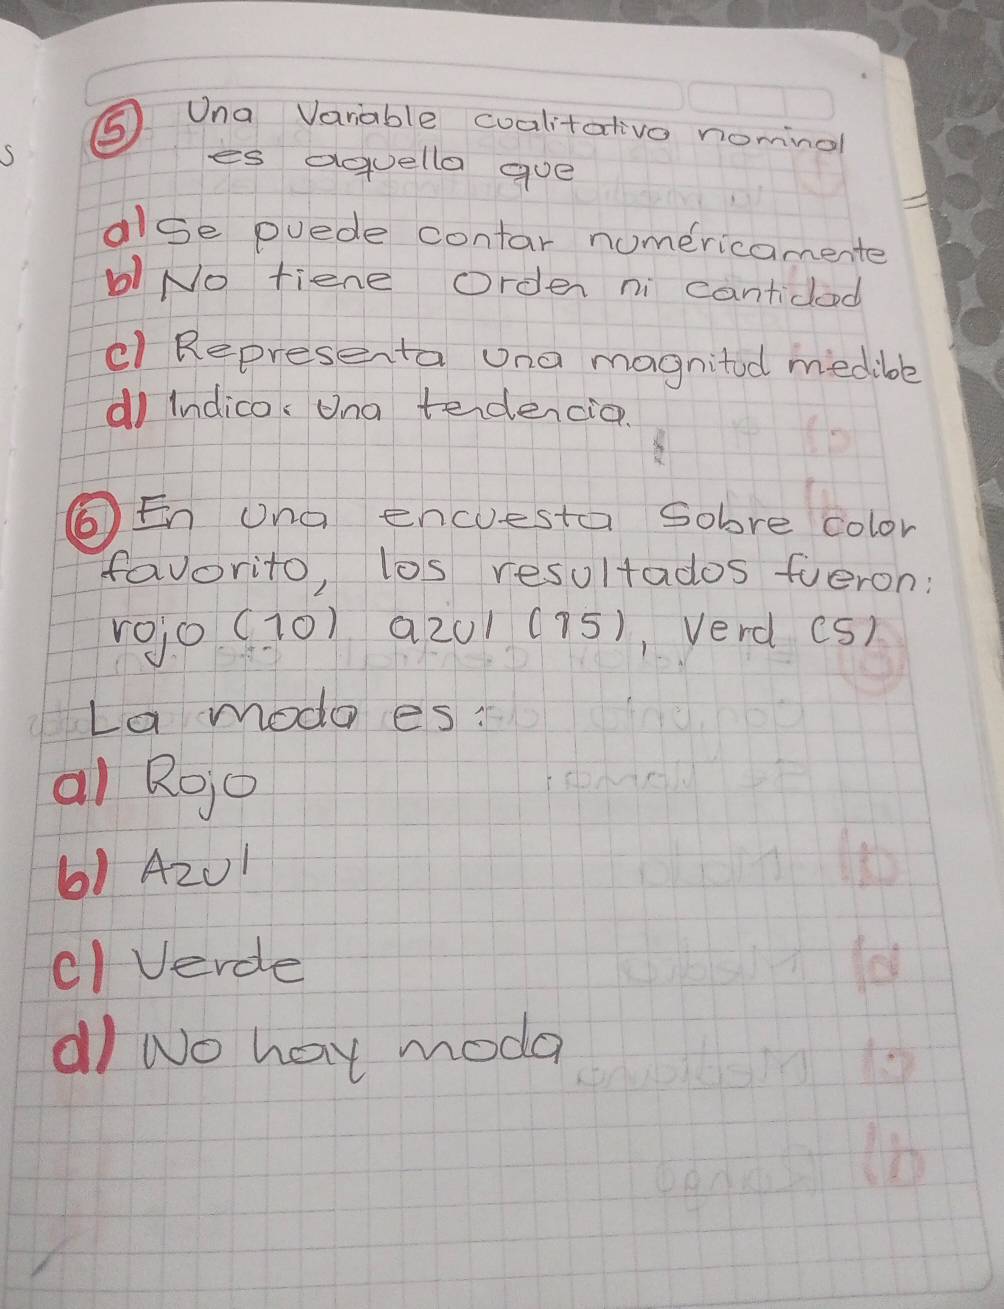 ⑤ Una Variable cualitativa nominal
es aquella que
a) Se puede contar numéricamente
b) No tiene Orden ni cantidad
c) Representa una magnitud medible
d) Indica una tendencia.
⑥ En una encuesta Sobre color
favorito, los resultados fueron:
rojo (10) azul (15), Verd (5)
La moda es:
a) Rojo
b) Azul
c) Verde
d) No hay moda